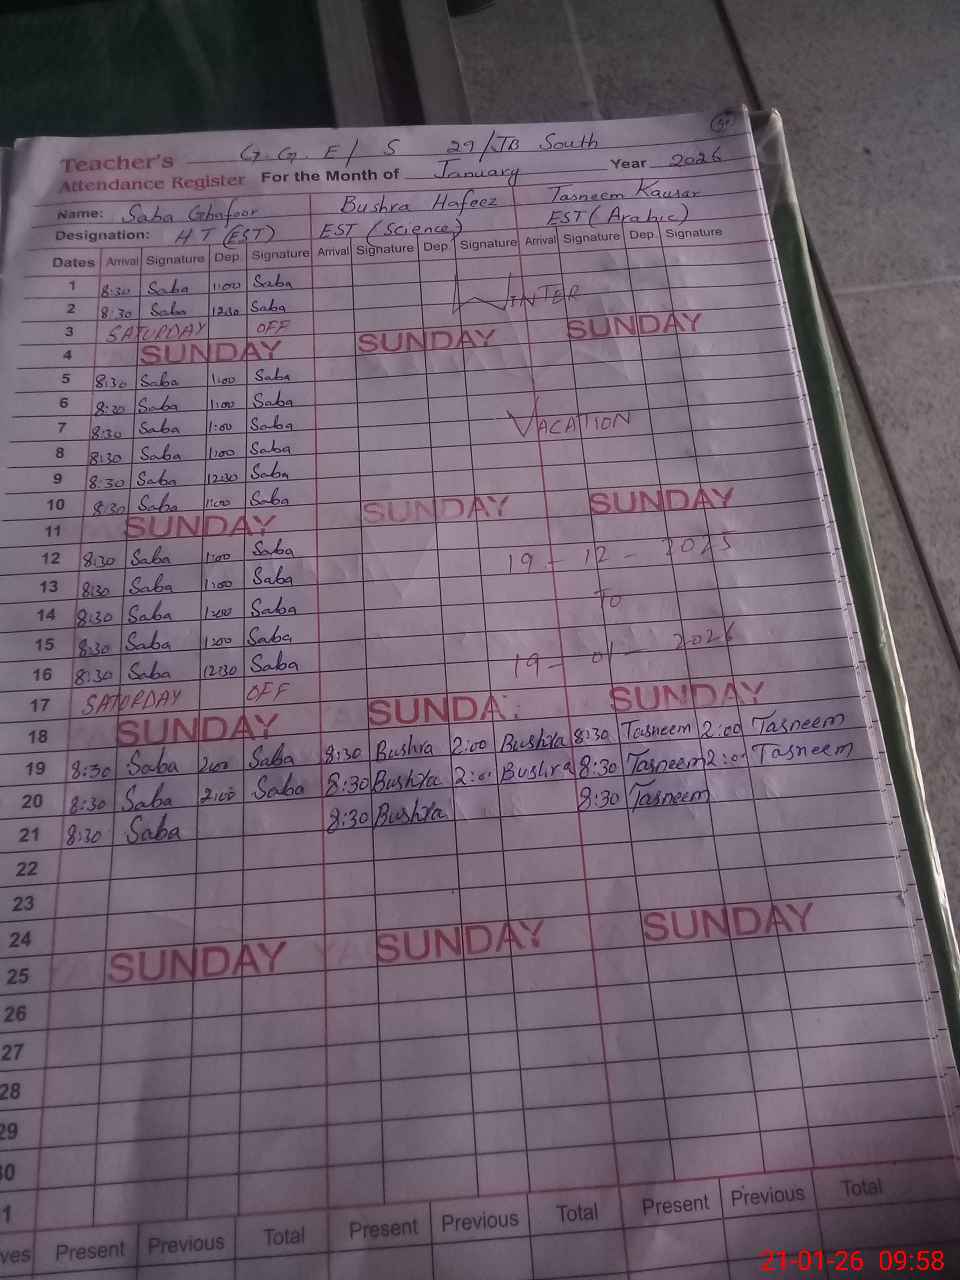 G.G.E/S 27/JB South
Teacher's
Attendance Register For the Month of January Year 2026
Name: Saba Ghafoor Bushra Hafeez Tasneem Kausar
Designation: HT (EST) EST (Science) EST (Arabic)
Dates Arrival Signature Dep. Signature Arrival Signature Dep. Signature Arrival Signature Dep. Signature
1 8:30 Saba 1:00 Saba
2 8:30 Saba 12:30 Saba WINTER
3 SATURDAY OFF
4 SUNDAY SUNDAY SUNDAY
5 8:30 Saba 1:00 Saba
6 8:30 Saba 1:00 Saba
7 8:30 Saba 1:00 Saba VACATION
8 8:30 Saba 1:00 Saba
9 8:30 Saba 12:30 Saba
10 8:30 Saba 1:00 Saba
11 SUNDAY SUNDAY SUNDAY
12 8:30 Saba 1:00 Saba 19-12-2025
13 8:30 Saba 1:00 Saba
14 8:30 Saba 1:00 Saba To
15 8:30 Saba 1:00 Saba
16 8:30 Saba 12:30 Saba 19-01-2026
17 SATURDAY OFF
18 SUNDAY SUNDA SUNDAY
19 8:30 Saba 2:00 Saba 8:30 Bushra 2:00 Bushra 8:30 Tasneem 2:00 Tasneem
20 8:30 Saba 2:00 Saba 8:30 Bushra 2:0 Bushra 8:30 Tasneem 2:0 Tasneem
21 8:30 Saba 8:30 Bushra 8:30 Tasneem
22
23
24
25 SUNDAY SUNDAY SUNDAY
26
27
28
29
30
1
ves Present Previous Total Present Previous Total Present Previous Total
21-01-26 09:58